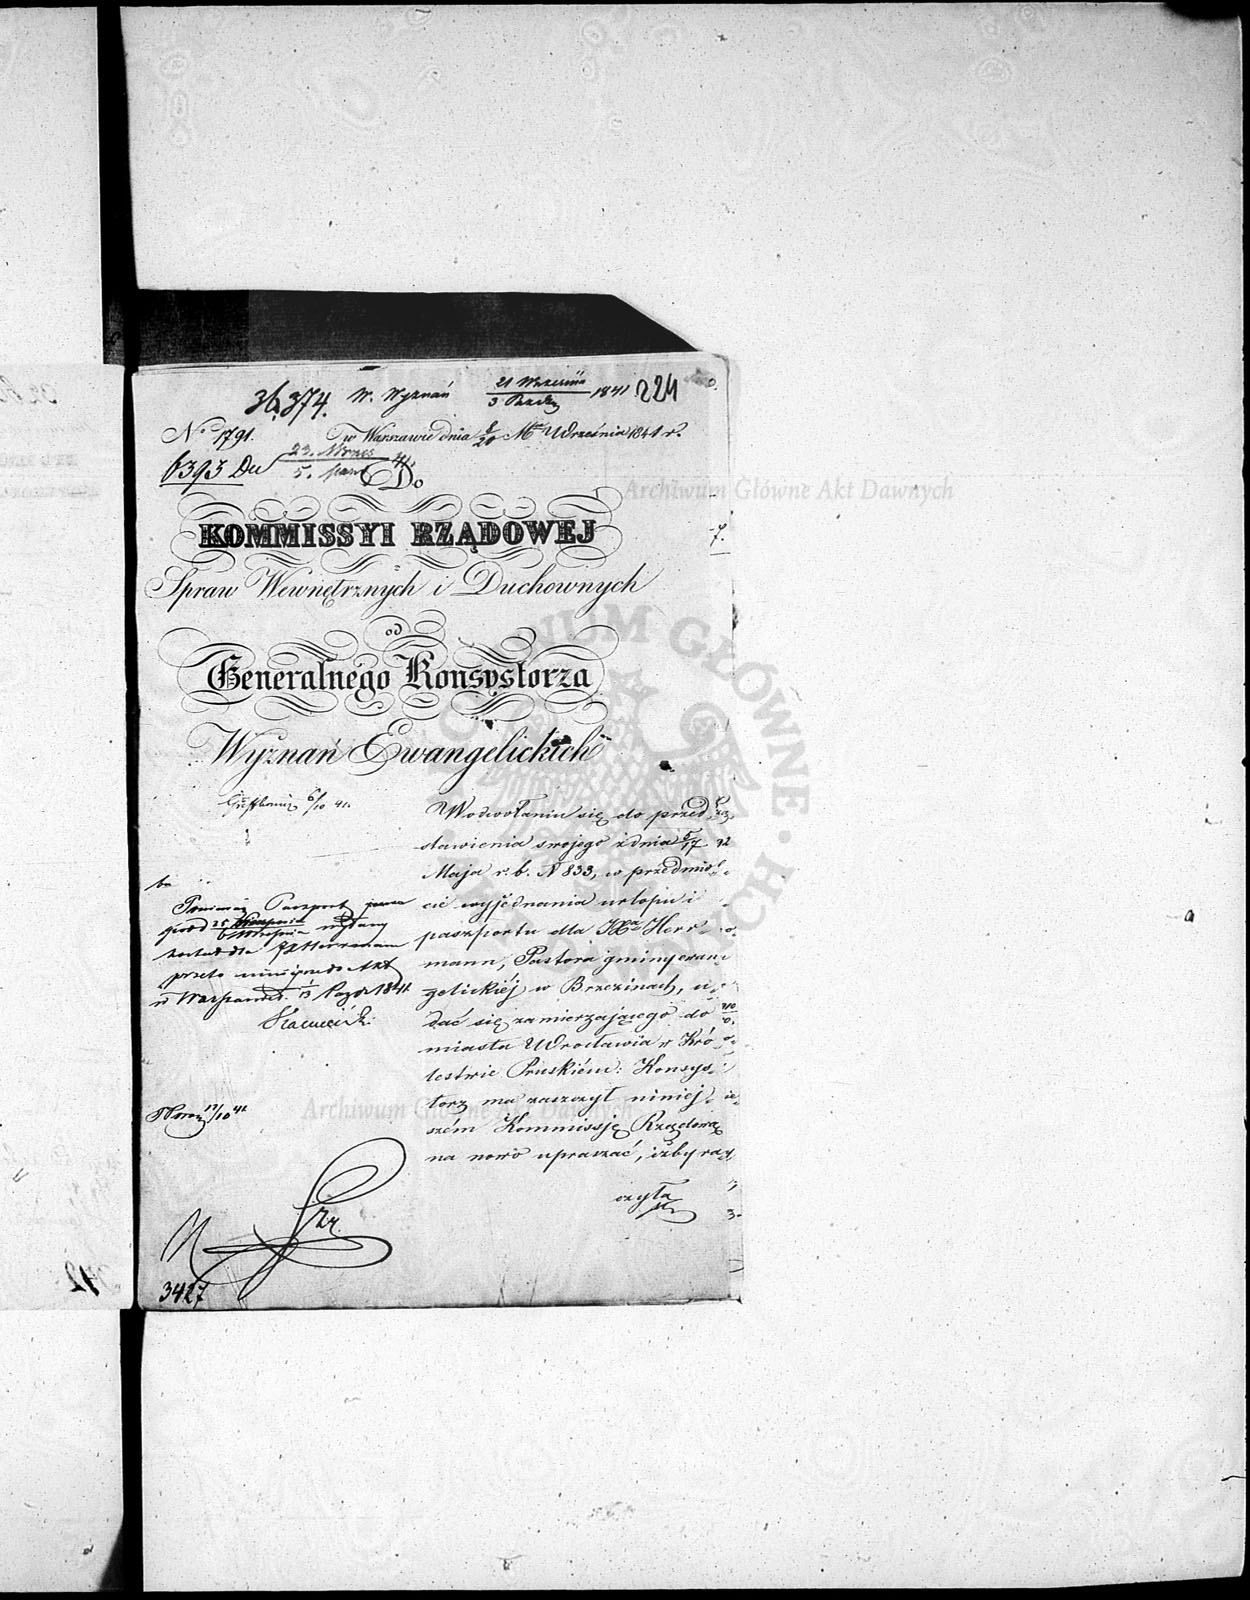 36,374. W. Wyznań 21 Września / 3 Paźdz 1841 224
No 1791. w Warszawie dnia 8/20 Mca Września 1841 r.
6393 Du 23. Wrześ / 5. paźd 41.
Do
KOMMISSYI RZĄDOWEJ
Spraw Wewnętrznych i Duchownych
od
Generalnego Konsystorza
Wyznań Ewangelickich
6/10 41.
W odwołaniu się do przed
stawienia swojego z dnia 5/17
Maja r. b. N 833, w przedmio
cie wyjednania urlopu i
paszportu dla Xa Herr
mann, Pastora gminy ewan
gelickiéj w Brzezinach, u
dać się zamierzającego do
miasta Wrocławia w Kró
lestwie Pruskiém: Konsys
torz ma zaszczyt niniej
szém Kommissję Rządową
na nowo upraszać, iżby ra
czyła
Ponieważ Paszport
pod 25 Września wydany
został dla JX Herrmann
przeto do Akt
w Warszawie 1/13 Paźdz 1841
12/10 41
3427
Archiwum Główne Akt Dawnych
Archiwum Główne Akt Dawnych